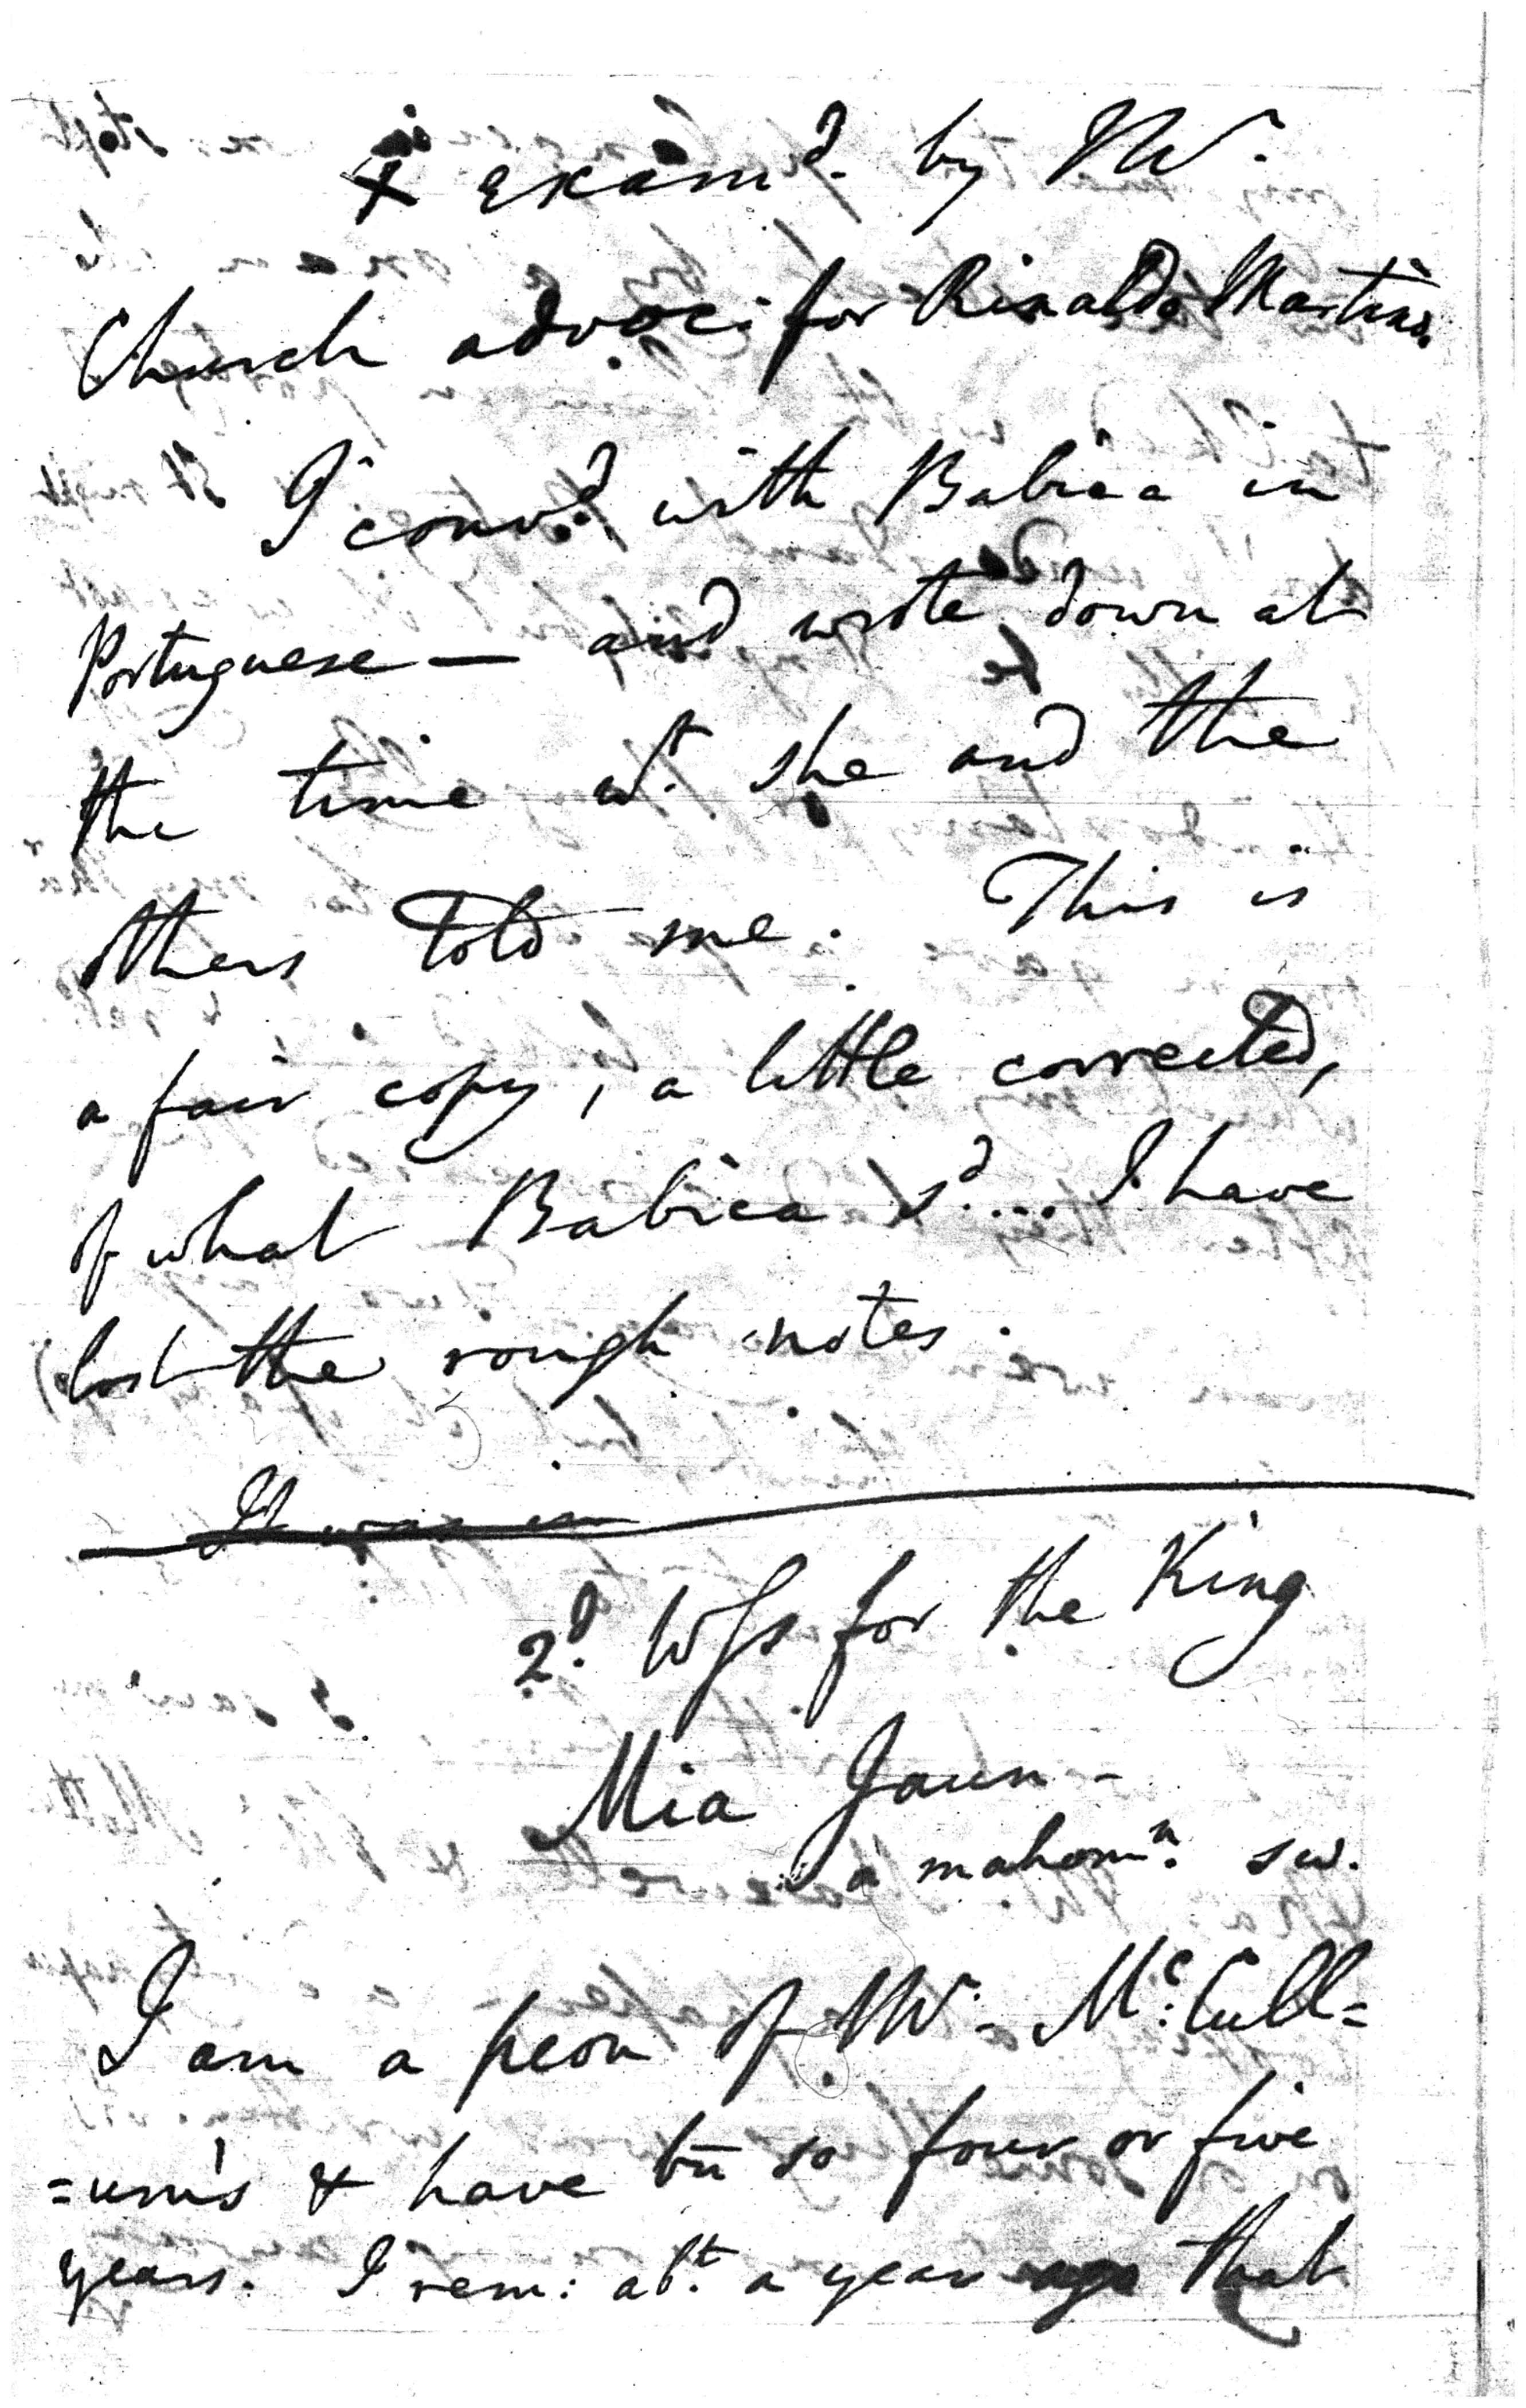 X Exam.d by Mr.
Church advoc: for Rinaldo Martins.
I conv.d with Babica in
Portuguese — and wrote down at
the time w.t she and the
others told me. This is
a fair copy, a little corrected,
of what Babica s.d .... I have
lost the rough notes.
It was in
2.d Wss for the King
Mia Jaun -
a mahom.n sw.
I am a peon of Mr. Mc: Cull=
=um's & have bn so four or five
years. I rem: ab.t a year ago that